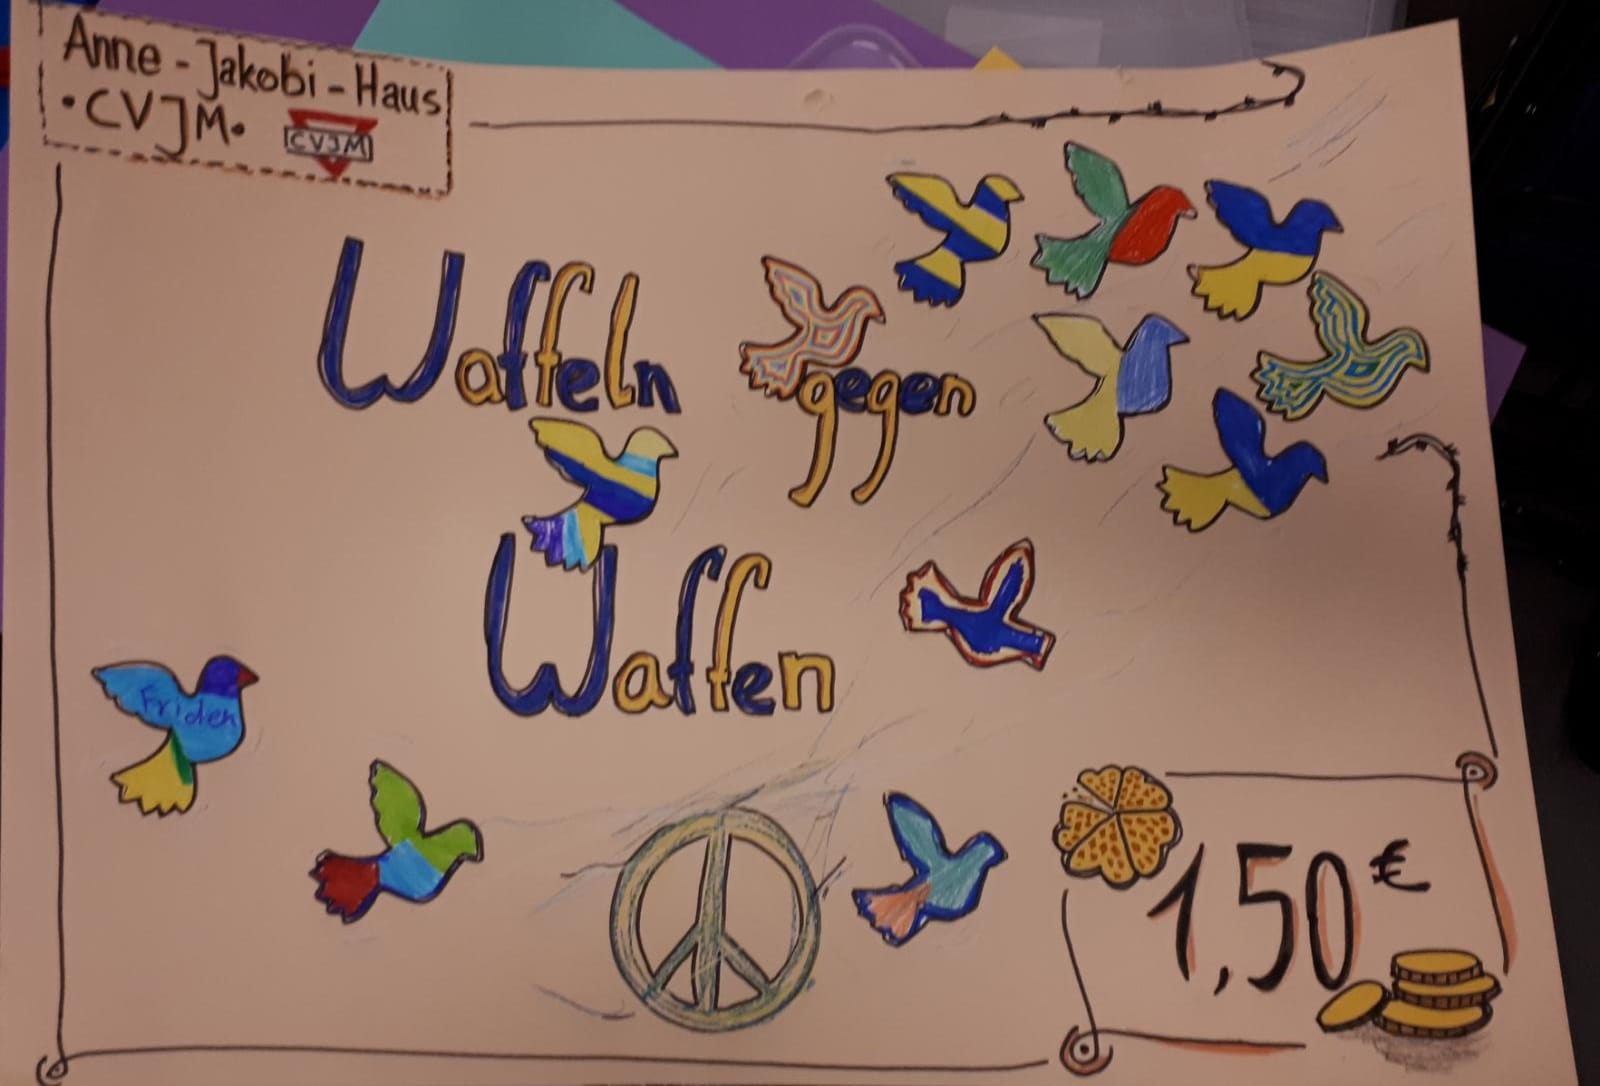 Anne-Jakobi-Haus
•CVJM•
CVJM
Waffeln gegen
Waffen
Friden
1,50€